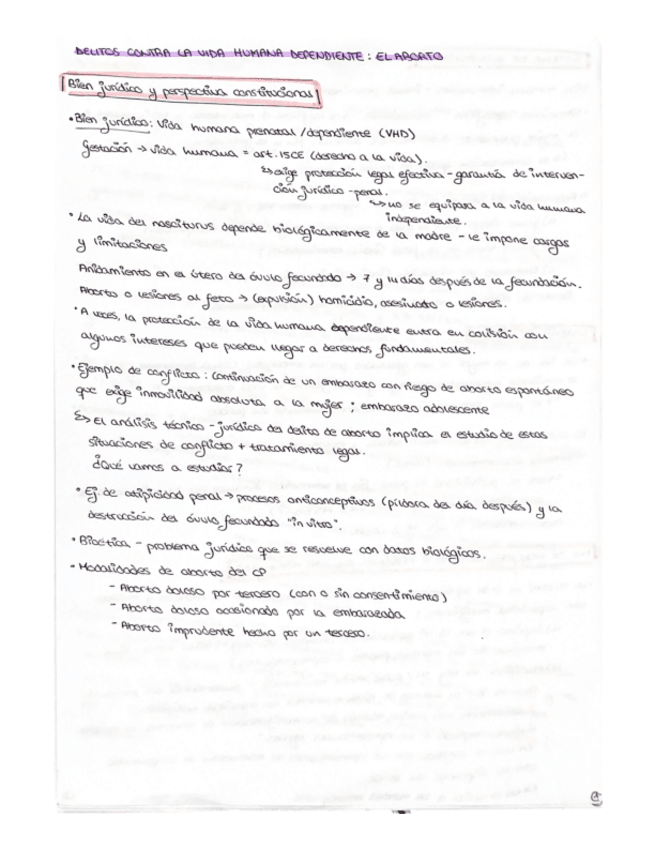 DELITOS CONTRA LA VIDA HUMANA DEPENDIENTE: EL ABORTO
Bien jurídico y perspectiva constitucional
• Bien jurídico: Vida humana prenatal/dependiente (VHD)
Gestación → vida humana = art. 15CE (derecho a la vida).
↳ exige protección legal efectiva - garantía de interven-
ción jurídico-penal.
↳ no se equipara a la vida humana
independiente.
• La vida del nasciturus depende biológicamente de la madre - le impone cargas
y limitaciones
Anidamiento en el útero del óvulo fecundado → 7 y 14 días después de la fecundación.
Aborto o lesiones al feto → (expulsión) homicidio, asesinato o lesiones.
• A veces, la protección de la vida humana dependiente entra en colisión con
algunos intereses que pueden llegar a derechos fundamentales.
• Ejemplo de conflicto: continuación de un embarazo con riesgo de aborto espontáneo
que exige inmovilidad absoluta a la mujer; embarazo adolescente
↳ El análisis técnico-jurídico del delito de aborto implica el estudio de estas
situaciones de conflicto + tratamiento legal.
¿Qué vamos a estudiar?
• Ej. de atipicidad penal → procesos anticonceptivos (píldora del día después) y la
destrucción del óvulo fecundado "in vitro".
• Bioética - problema jurídico que se resuelve con datos biológicos.
• Modalidades de aborto del CP
- Aborto doloso por tercero (con o sin consentimiento)
- Aborto doloso ocasionado por la embarazada
- Aborto imprudente hecho por un tercero.